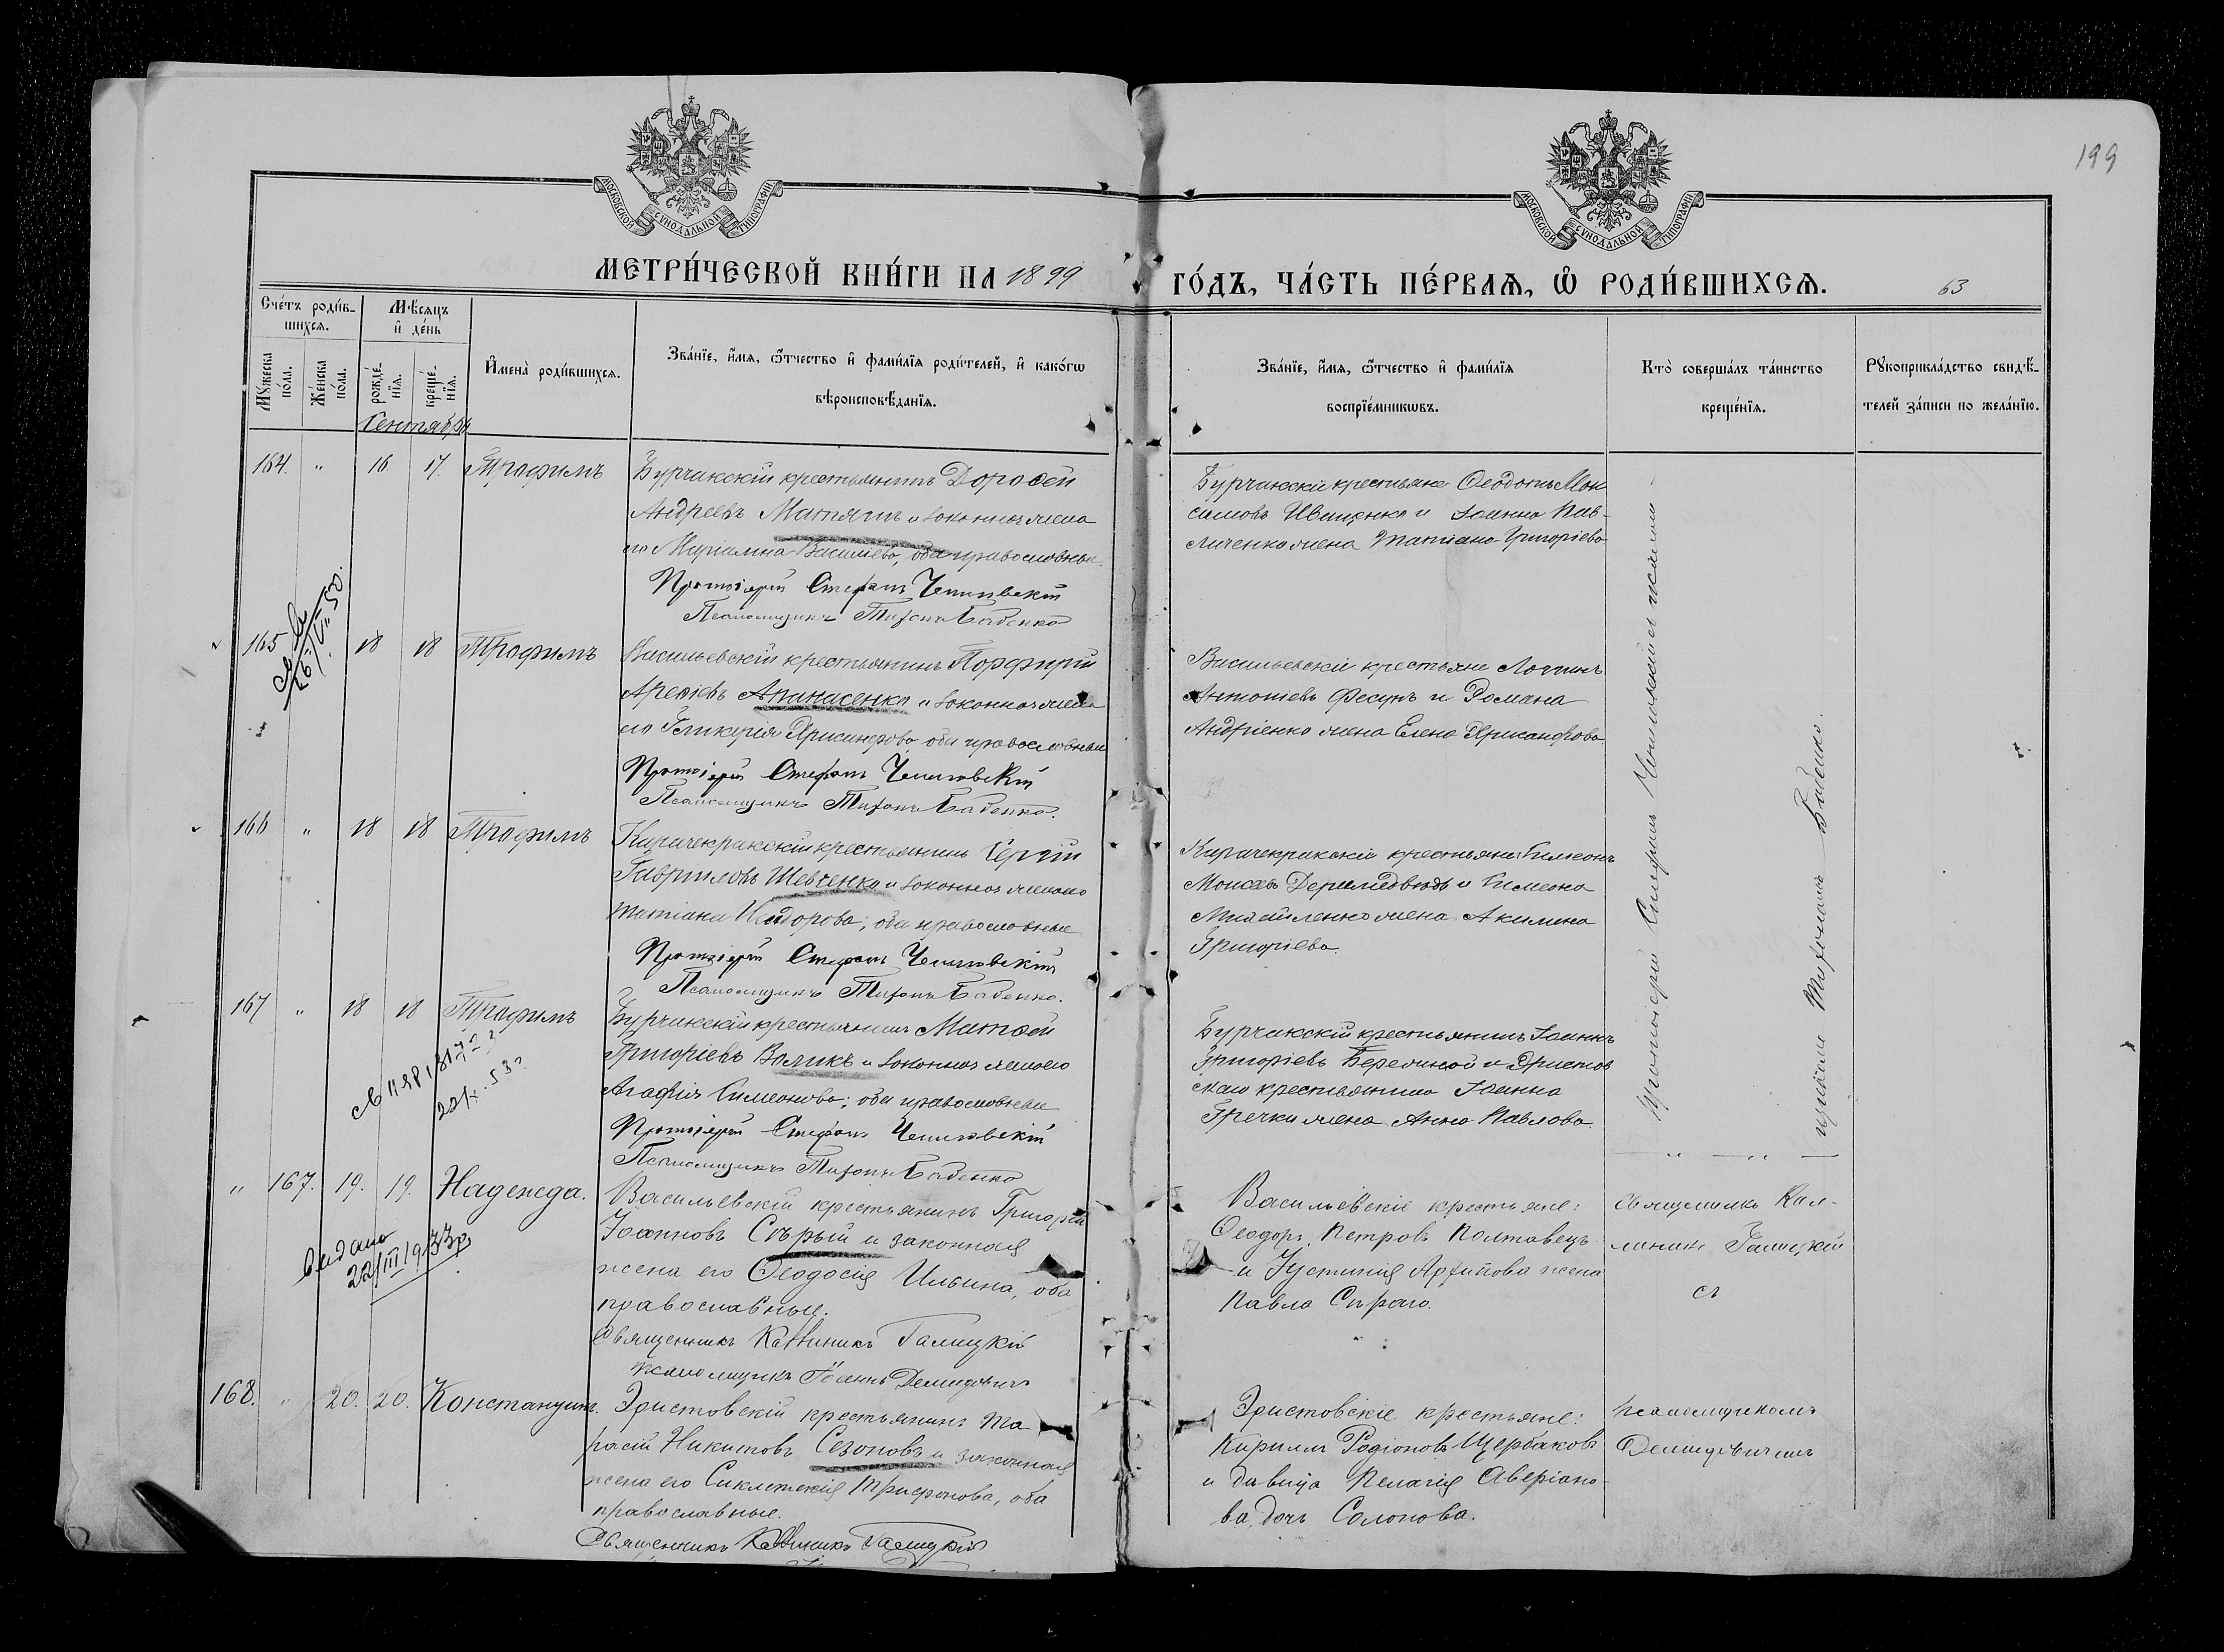 199
МОСКОВСКОЙ СУНОДАЛЬНОЙ ТИПОГРАФІИ
МОСКОВСКОЙ СУНОДАЛЬНОЙ ТИПОГРАФІИ
МЕТРИ́ЧЕСКОЙ КНИ́ГИ НА 1899
ГО́ДЪ, ЧА́СТЬ ПЕ́РВАѦ, Ѡ҆ РОДИ́ВШИХСѦ.
63
Сче́тъ роди́в-
шихсѧ.
Мѣ́сѧцъ
и҆ де́нь
Мꙋ́жеска
по́ла.
Же́нска
по́ла.
рожде́-
нїѧ.
креще́-
нїѧ.
И҆мена̀ роди́вшихсѧ.
Зва́нїе, и҆́мѧ, ѻ҆́тчество и҆ фами́лїѧ роди́телей, и҆ како́гѡ
вѣроисповѣ́данїѧ.
Зва́нїе, и҆́мѧ, ѻ҆́тчество и҆ фами́лїѧ
воспрїе́мникѡвъ.
Кто̀ соверша́лъ та́инство
креще́нїѧ.
Рꙋкоприкла́дство свидѣ́-
телей за́писи по жела́нїю.
Сентябрь
164. " 16. 17. Трофимъ
Бурчакскій крестьянинъ Дороѳей
Андреевъ Матяшъ и законная жена
его Маріамна Васильева, оба православные.
Протоіерей Стефанъ
Псаломщикъ Тихонъ Бабенко
Бурчакскіе крестьяне Ѳеодотъ Мак
симовъ Иващенко и Іоанна Пав-
личенко жена Татіана Григоріева
165 18 18 Трофимъ
26/VII 50.
Васильевскій крестьянинъ Порфирій
Арефіевъ Апанасенко и законная жена
его Гликерія оба православные
Протоіерей Стефанъ
Псаломщикъ Тихонъ Бабенко.
Васильевскіе крестьяне Логинъ
Антоніевъ Фесунъ и Романа
Андріенко жена Елена
166 " 18 18 Трофимъ
Карачекракскій крестьянинъ Сергій
Гавриловъ Шевченко и законная жена его
Татіана оба православные
Протоіерей Стефанъ
Псаломщикъ Тихонъ Бабенко.
Карачекракскіе крестьяне Симеонъ
Моисеевъ Деримедведь и Симеона
Михайленко жена Акилина
Григоріева.
167 " 18 18 Трофимъ
Бурчакскій крестьянинъ Матѳей
Григоріевъ Воликъ и законная жена его
Агафія Симеонова; оба православные
Протоіерей Стефанъ
Псаломщикъ Тихонъ Бабенко
Бурчакскій крестьянинъ Іоаннъ
Григоріевъ Березной и Эристов
скаго крестьянина Іоанна
Гречки жена Анна Павлова.
Протоіерей Стефанъ
псаломщ. Тихономъ Бабенко.
" 167. 19. 19. Надежда.
Выдано
22/III 1933р
Васильевскій крестьянинъ Григорій
Іоанновъ Сѣрый и законная
жена его Ѳеодосія Ильина, оба
православные.
Священникъ Каллиникъ Галицкій
псаломщикъ Іоаннъ Демидовичъ
Васильевскіе крестьяне:
Ѳеодоръ Петровъ Полтавецъ
и Іустинія Архипова жена
Павла Сѣраго.
Священникъ Кал-
линикъ Галицкій
съ
168. " 20. 20. Константинъ.
Эристовскій крестьянинъ Та
расій Никитовъ Сезоновъ и законная
жена его Синклитикія Трифонова, оба
православные.
Священникъ Каллиникъ Галицкій
Эристовскіе крестьяне:
Кириллъ Родіоновъ Щербаковъ
и дѣвица Пелагія Аверіано-
ва, дочь Солопова.
псаломщикомъ
Демидовичемъ